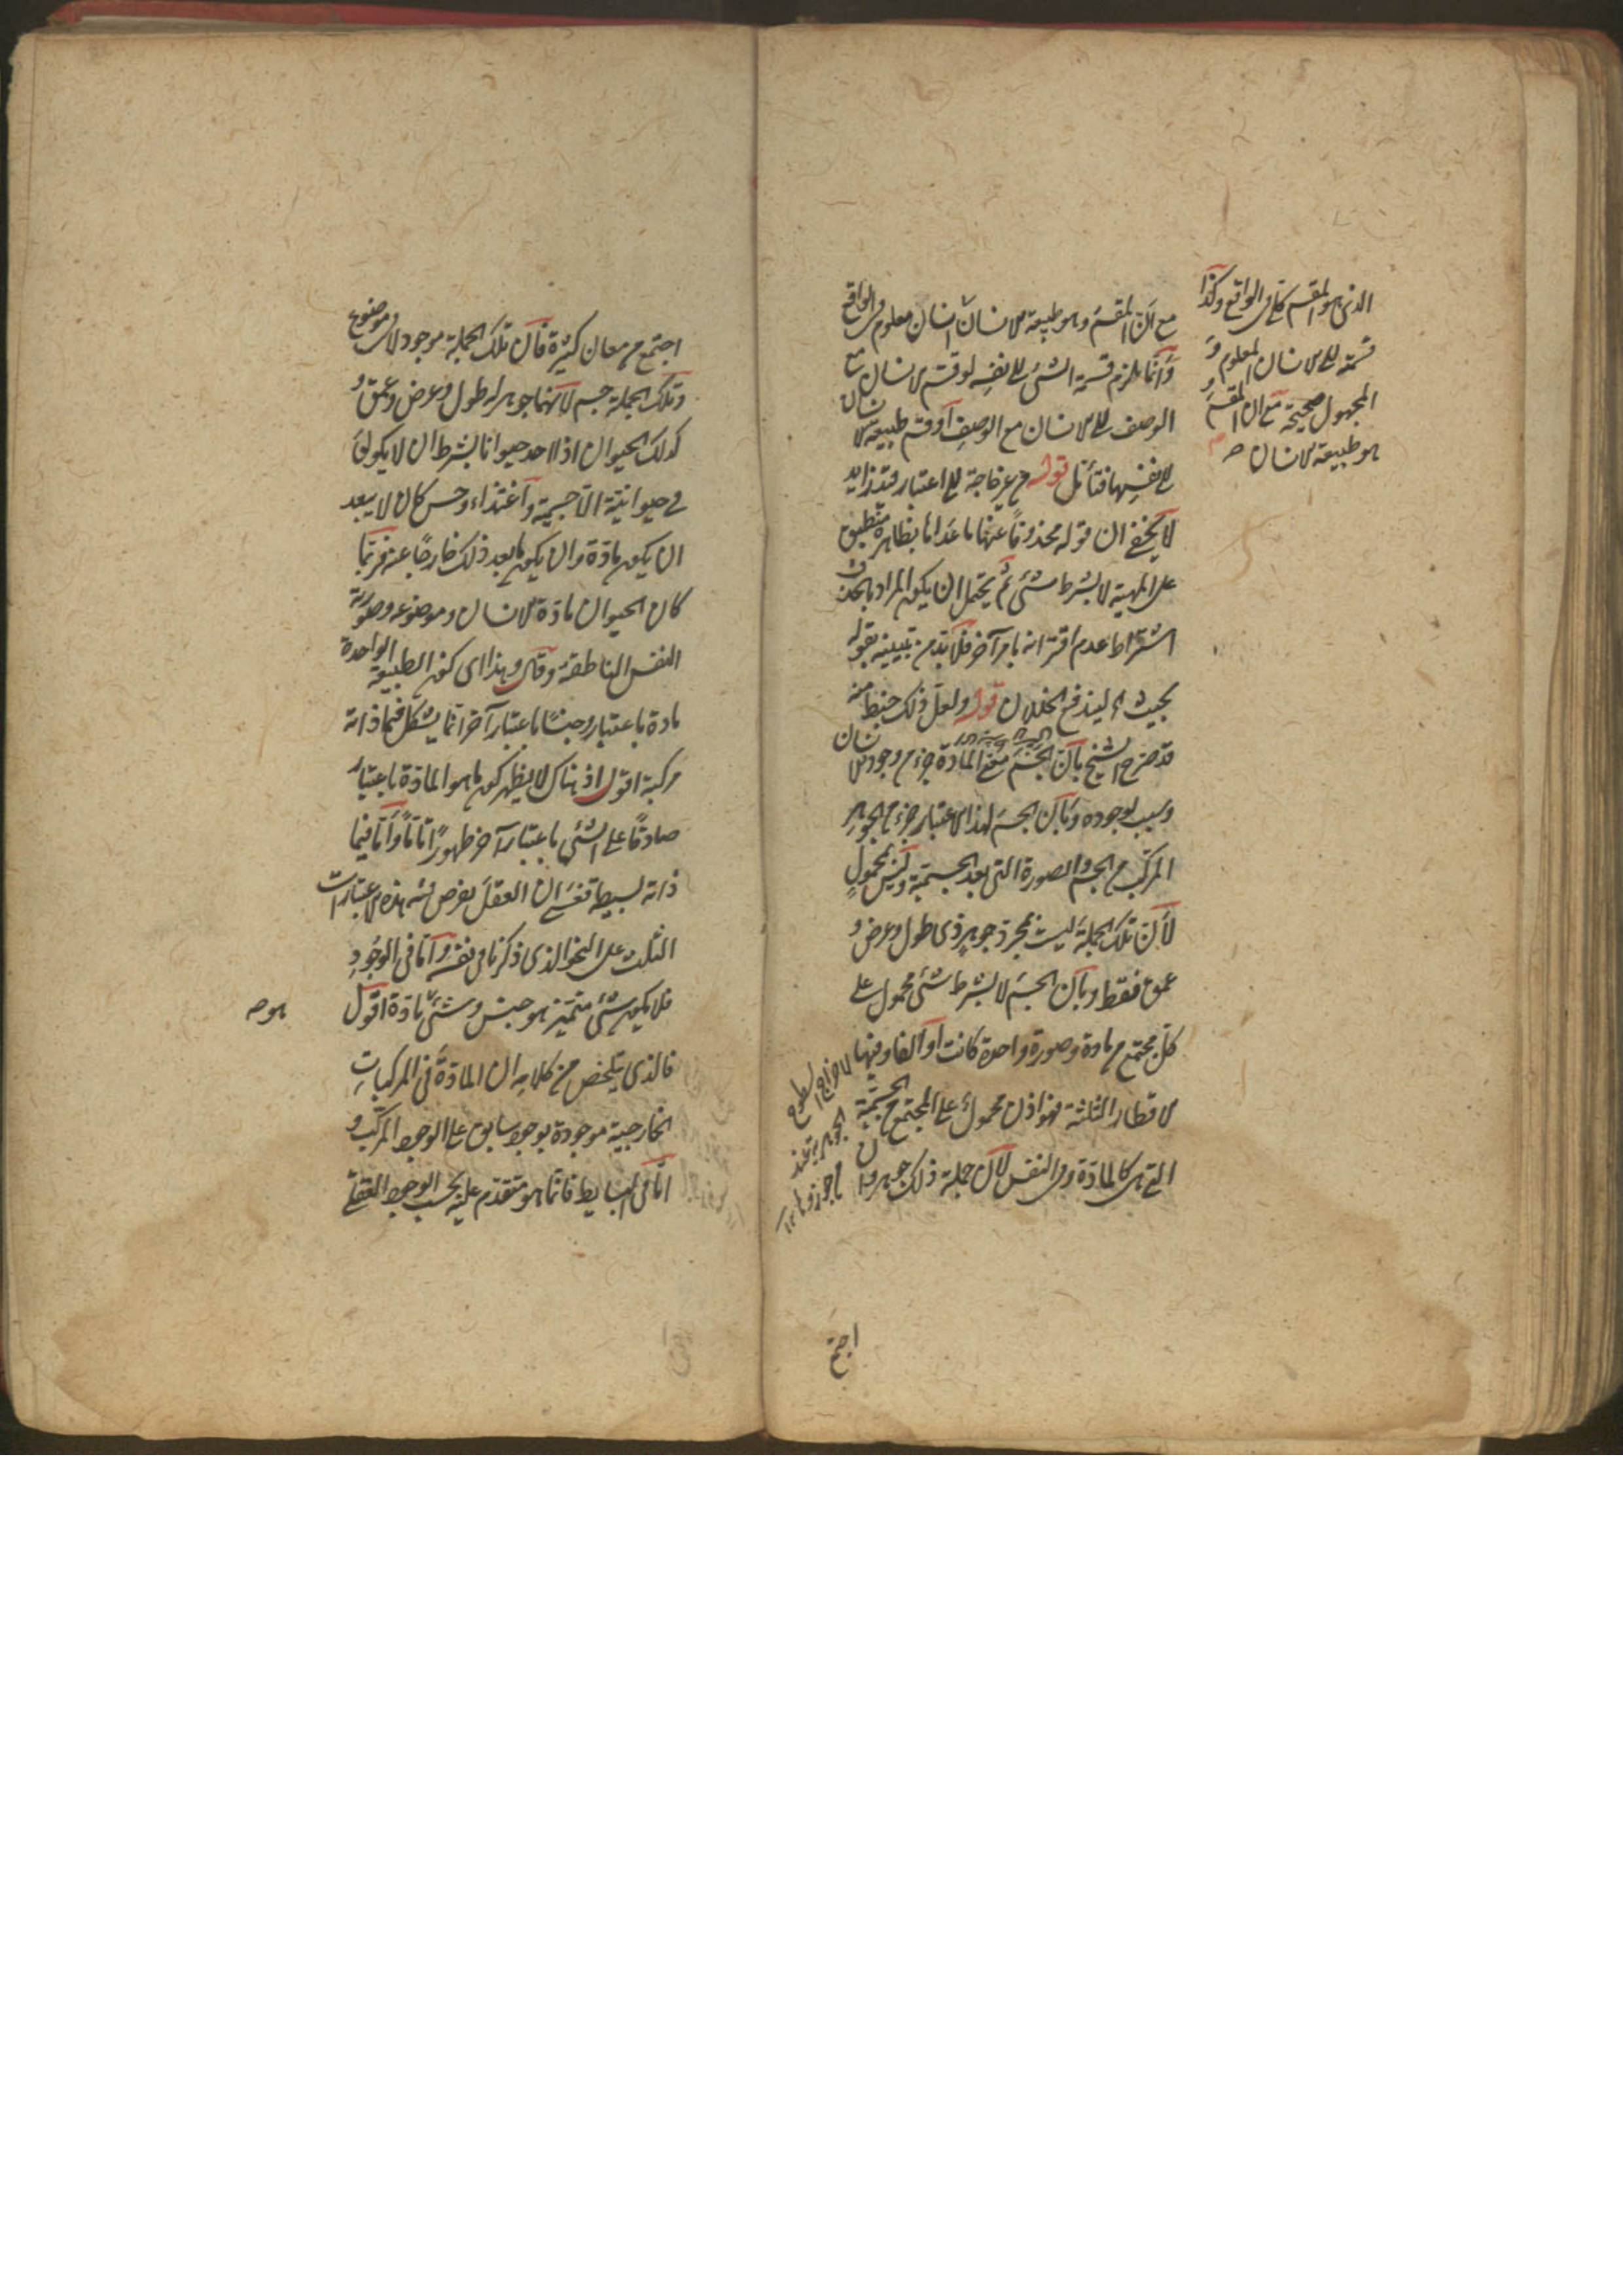 مع ان المقسم وهو طبيعة الانسان انسان معلوم في الواقع
وانما يلزم قسمة الشئ الى نفسه لو قسم الانسان مع
الوصف الى الانسان مع الوصف او قسم طبيعة الانسان
الى نفسها فتأمل قوله من غير حاجة الى اعتبار قيد زايد
لا يخفى ان قوله محذوفا عنها ما عداها بظاهره منطبق
على المهية لا بشرط شئ ثم يحتمل ان يكون المراد بالحذف
اشتراط عدم اقترانه بامر آخر فلا بد من تبيينه بقوله
بحيث اه ليندفع الخللان قوله ولعل ذلك خبط منه
قد صرح الشيخ بأن الجسم بمعنى المادة جزء من وجود الانسان
وسبب لوجوده وبأن الجسم لهذا الاعتبار جزء من الجوهر
المركب من الجسم والصورة التى بعد الجسمية وليس بمحمول
لان تلك الجملة ليست بمجرد جوهر ذى طول وعرض و
عمق فقط وبأن الجسم لا بشرط شئ محمول على
كل مجتمع من مادة وصورة واحدة كانت او الفا وفيها
الاقطار الثلثة فهو اذن محمول على المجتمع من الجسمية
التى هى كالمادة ومن النفس لان جملة ذلك جوهر وان
اجتمع
الذى هو المقسم كلى فى الواقع وكذا
قسمته الى الانسان المعلوم و
المجهول صحيحة مع ان المقسم
هو طبيعة الانسان صح
اجتمع من معان كثيرة فان تلك الجملة موجود لا فى موضوع
وتلك الجملة جسم لانها جوهر له طول وعرض وعمق و
كذلك الحيوان اذا اخذ حيوانا بشرط ان لا يكون
فى حيوانيته الا جسمية واغتذاء وحس كان لا يبعد
ان يكون مادة وان يكون ما بعد ذلك خارجا عنه فربما
كان الحيوان مادة للانسان وموضوعه وصورته
النفس الناطقة وقال وهذا اى كون الطبيعة الواحدة
مادة باعتبار وجنسا باعتبار آخر انما يشكل فيما ذاته
مركبة اقول اذ هناك لا يظهر كون ما هو المادة باعتبار
صادقا على الشئ باعتبار آخر ظهورا تاما واما فيما
ذاته بسيطة فعسى ان العقل يفرض فيه هذه الاعتبارات
الثلث على النحو الذى ذكرنا فى نفسه واما فى الوجود
فلا يكون شئ متميز هو جنس وشئ مادة اقول
هو صح
فالذى يتلخص من كلامه ان المادة فى المركبات
الخارجية موجودة بوجود سابق على الوجود المركب و
اما فى البسايط فانما هو متقدم عليه بحسب الوجود العقلى